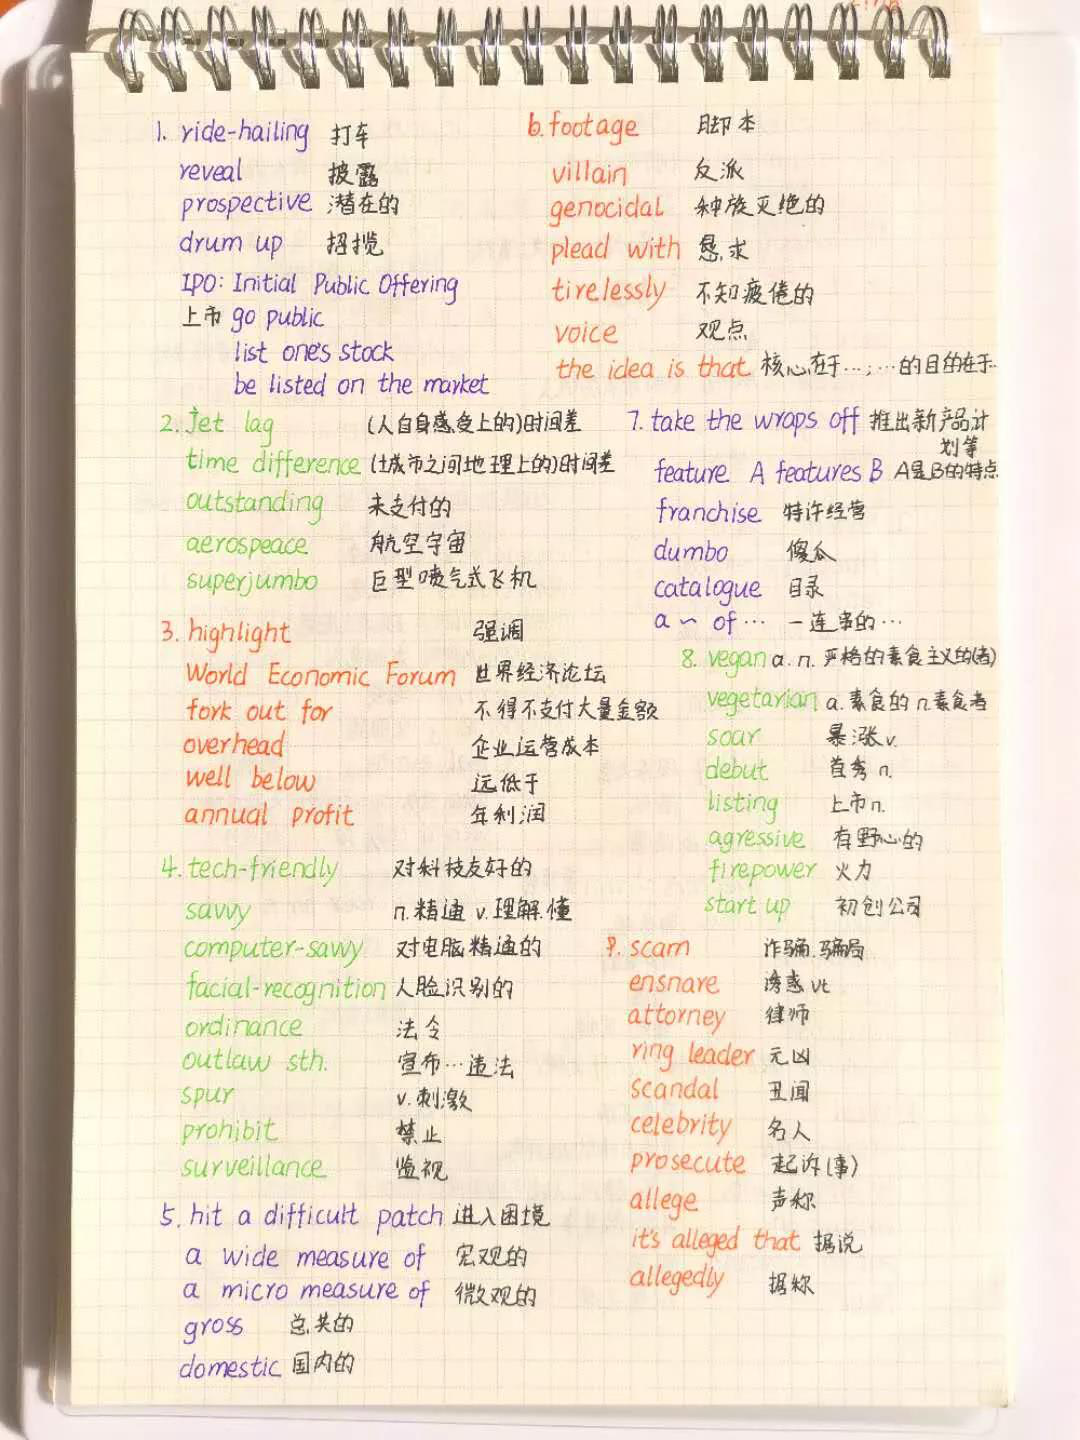 1. ride-hailing 打车
reveal 披露
prospective 潜在的
drum up 招揽
IPO: Initial Public Offering
上市 go public
list one's stock
be listed on the market
2. Jet lag (人自身感受上的)时间差
time difference (城市之间地理上的)时间差
outstanding 未支付的
aerospeace 航空宇宙
superjumbo 巨型喷气式飞机
3. highlight 强调
World Economic Forum 世界经济论坛
fork out for 不得不支付大量金额
overhead 企业运营成本
well below 远低于
annual profit 年利润
4. tech-friendly 对科技友好的
savvy n.精通 v.理解.懂
computer-savvy 对电脑精通的
facial-recognition 人脸识别的
ordinance 法令
outlaw sth. 宣布…违法
spur v.刺激
prohibit 禁止
surveillance 监视
5. hit a difficult patch 进入困境
a wide measure of 宏观的
a micro measure of 微观的
gross 总共的
domestic 国内的
6. footage 脚本
villain 反派
genocidal 种族灭绝的
plead with 恳求
tirelessly 不知疲倦的
voice 观点
the idea is that 核心在于…;…的目的在于…
7. take the wraps off 推出新产品计
划等
feature A features B A是B的特点
franchise 特许经营
dumbo 傻瓜
catalogue 目录
a ~ of … 一连串的…
8. vegan a. n. 严格的素食主义的(者)
vegetarian a.素食的 n.素食者
soar 暴涨 v.
debut 首秀 n.
listing 上市 n.
agressive 有野心的
firepower 火力
start up 初创公司
9. scam 诈骗.骗局
ensnare 诱惑 vt
attorney 律师
ring leader 元凶
scandal 丑闻
celebrity 名人
prosecute 起诉(事)
allege 声称
it's alleged that 据说
allegedly 据称